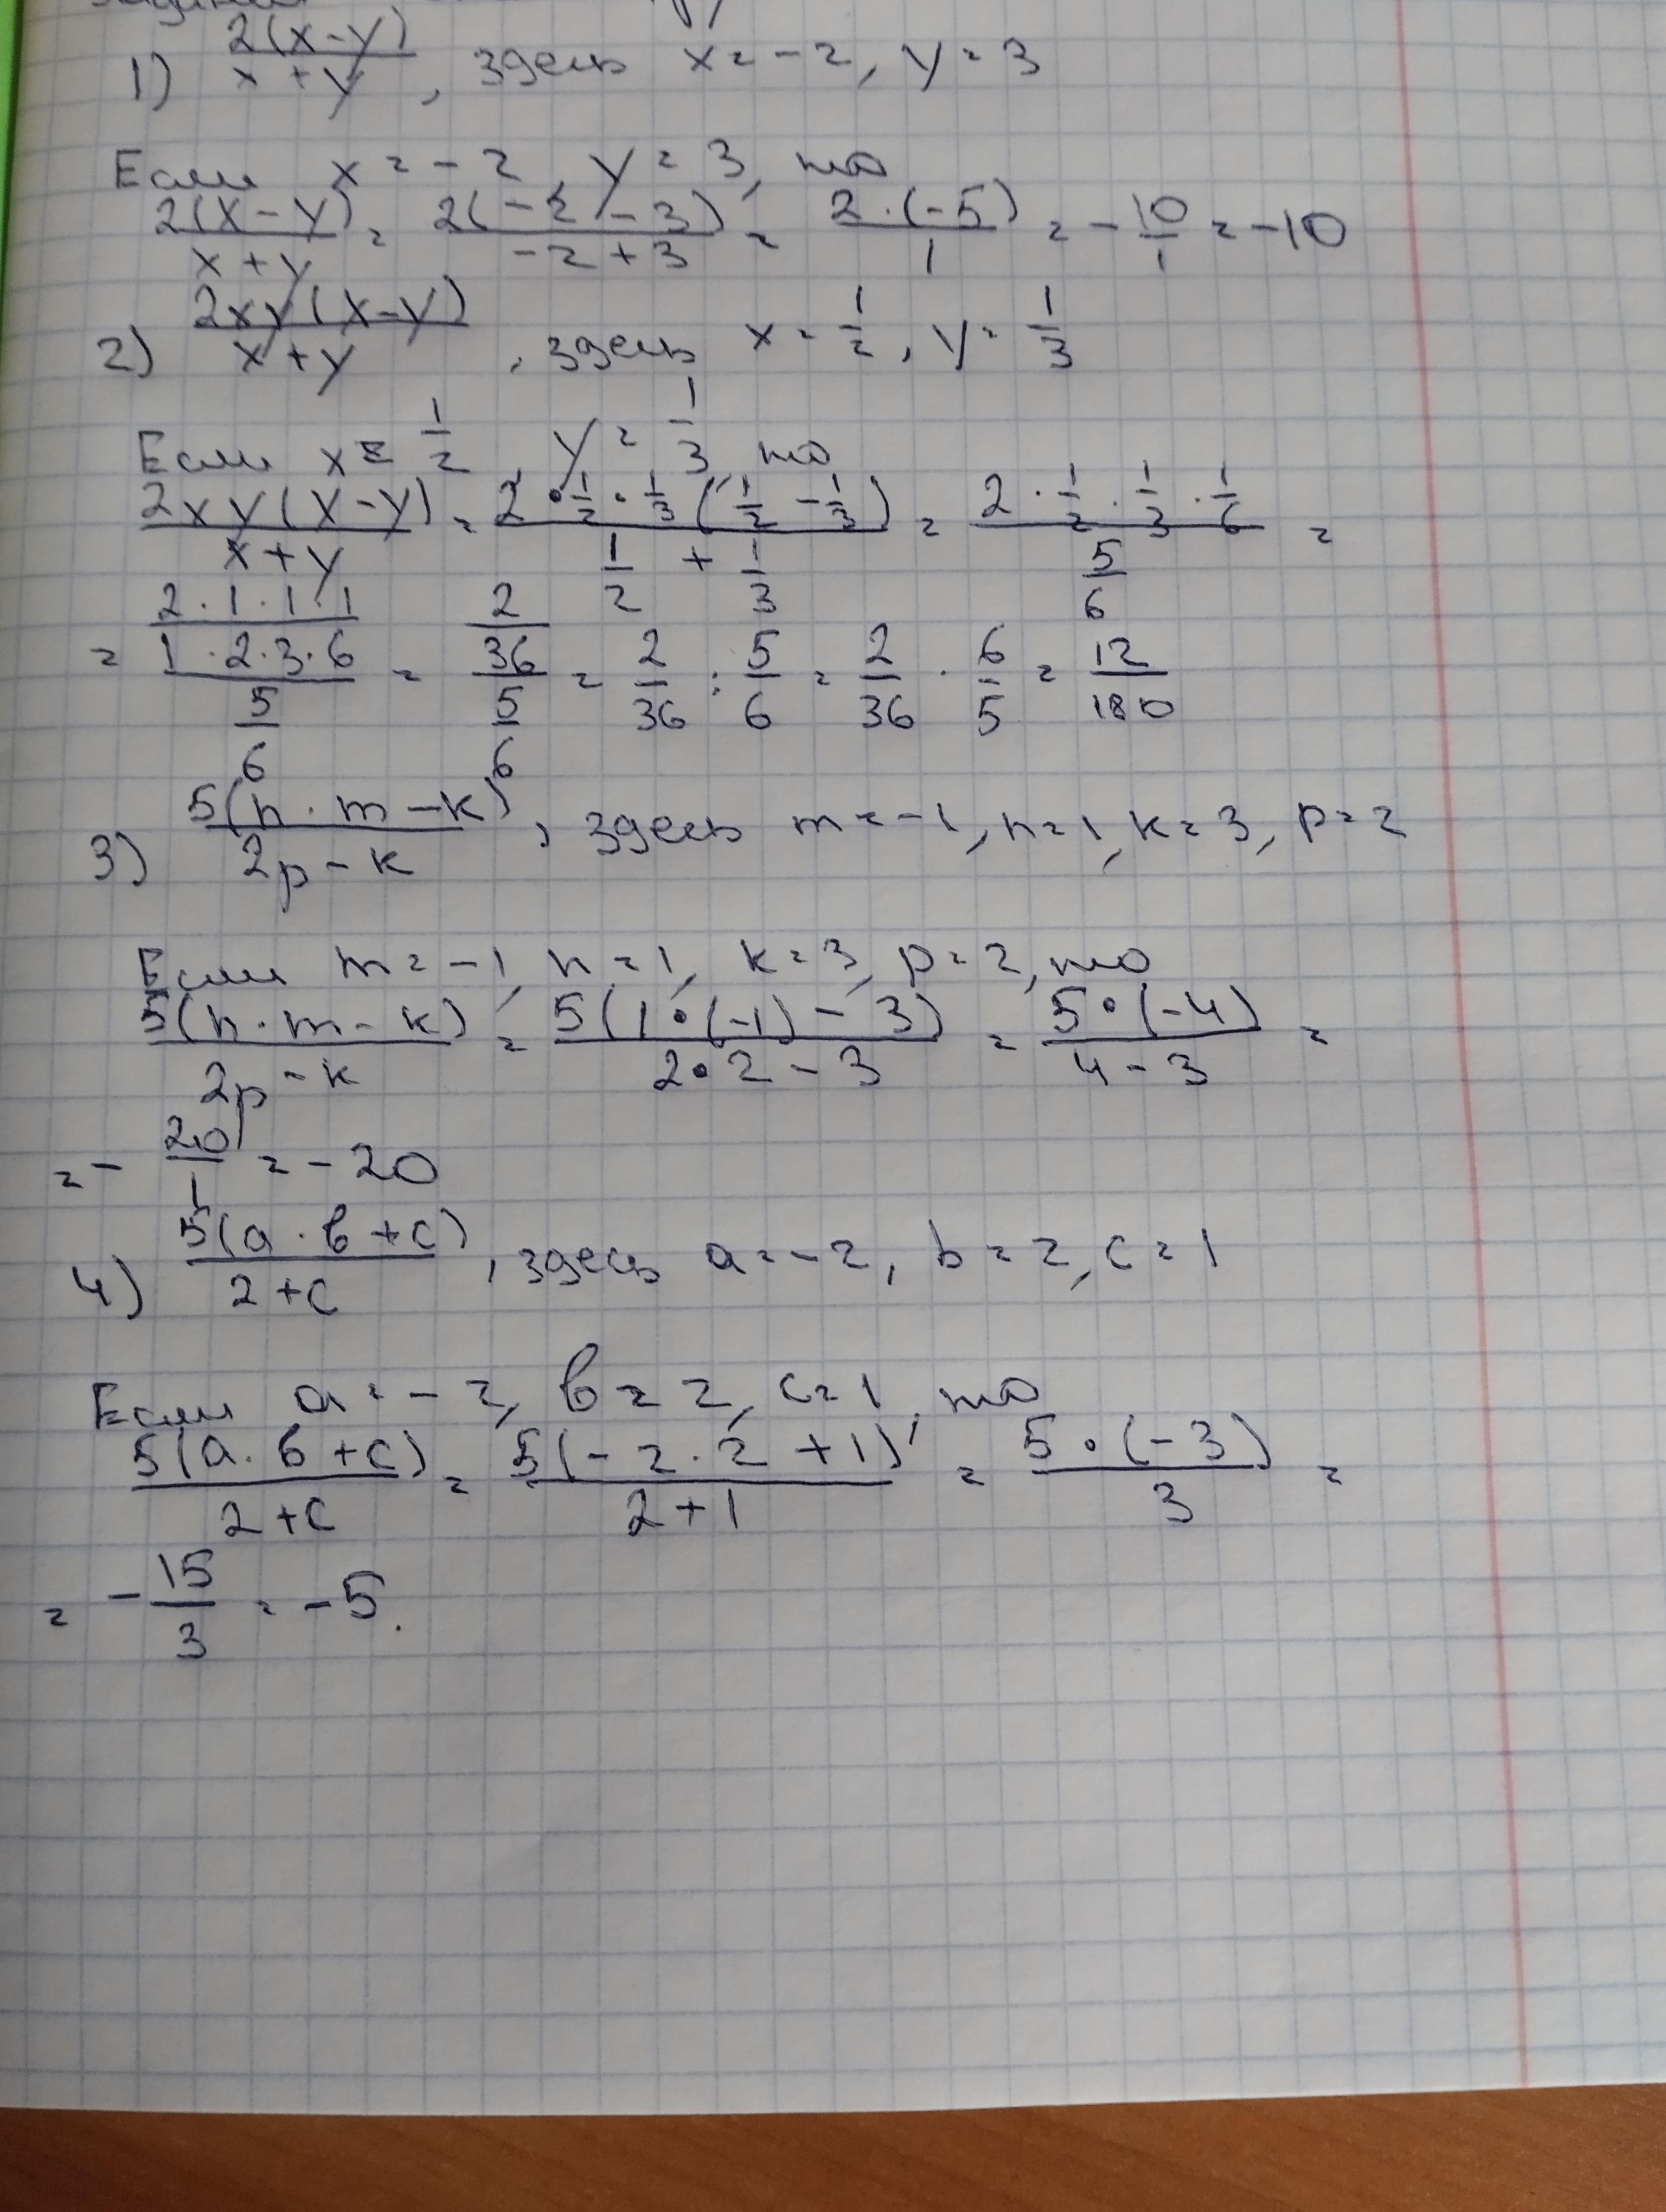 1) 2(x-y)/x+y, здесь x=-2, y=3
Если x=-2, y=3, то
2(x-y)/x+y = 2(-2-3)/-2+3 = 2·(-5)/1 = -10/1 = -10
2) 2xy(x-y)/x+y, здесь x=1/2, y=1/3
Если x=1/2, y=1/3, то
2xy(x-y)/x+y = 2·1/2·1/3(1/2-1/3)/1/2+1/3 = 2·1/2·1/3·1/6/5/6 =
= 2·1·1·1/1·2·3·6/5/6 = 2/36/5/6 = 2/36 : 5/6 = 2/36 · 6/5 = 12/180
3) 5(n·m-k)/2p-k, здесь m=-1, n=1, k=3, p=2
Если m=-1, n=1, k=3, p=2, то
5(n·m-k)/2p-k = 5(1·(-1)-3)/2·2-3 = 5·(-4)/4-3 =
= -20/1 = -20
4) 5(a·b+c)/2+c, здесь a=-2, b=2, c=1
Если a=-2, b=2, c=1, то
5(a·b+c)/2+c = 5(-2·2+1)/2+1 = 5·(-3)/3 =
= -15/3 = -5.